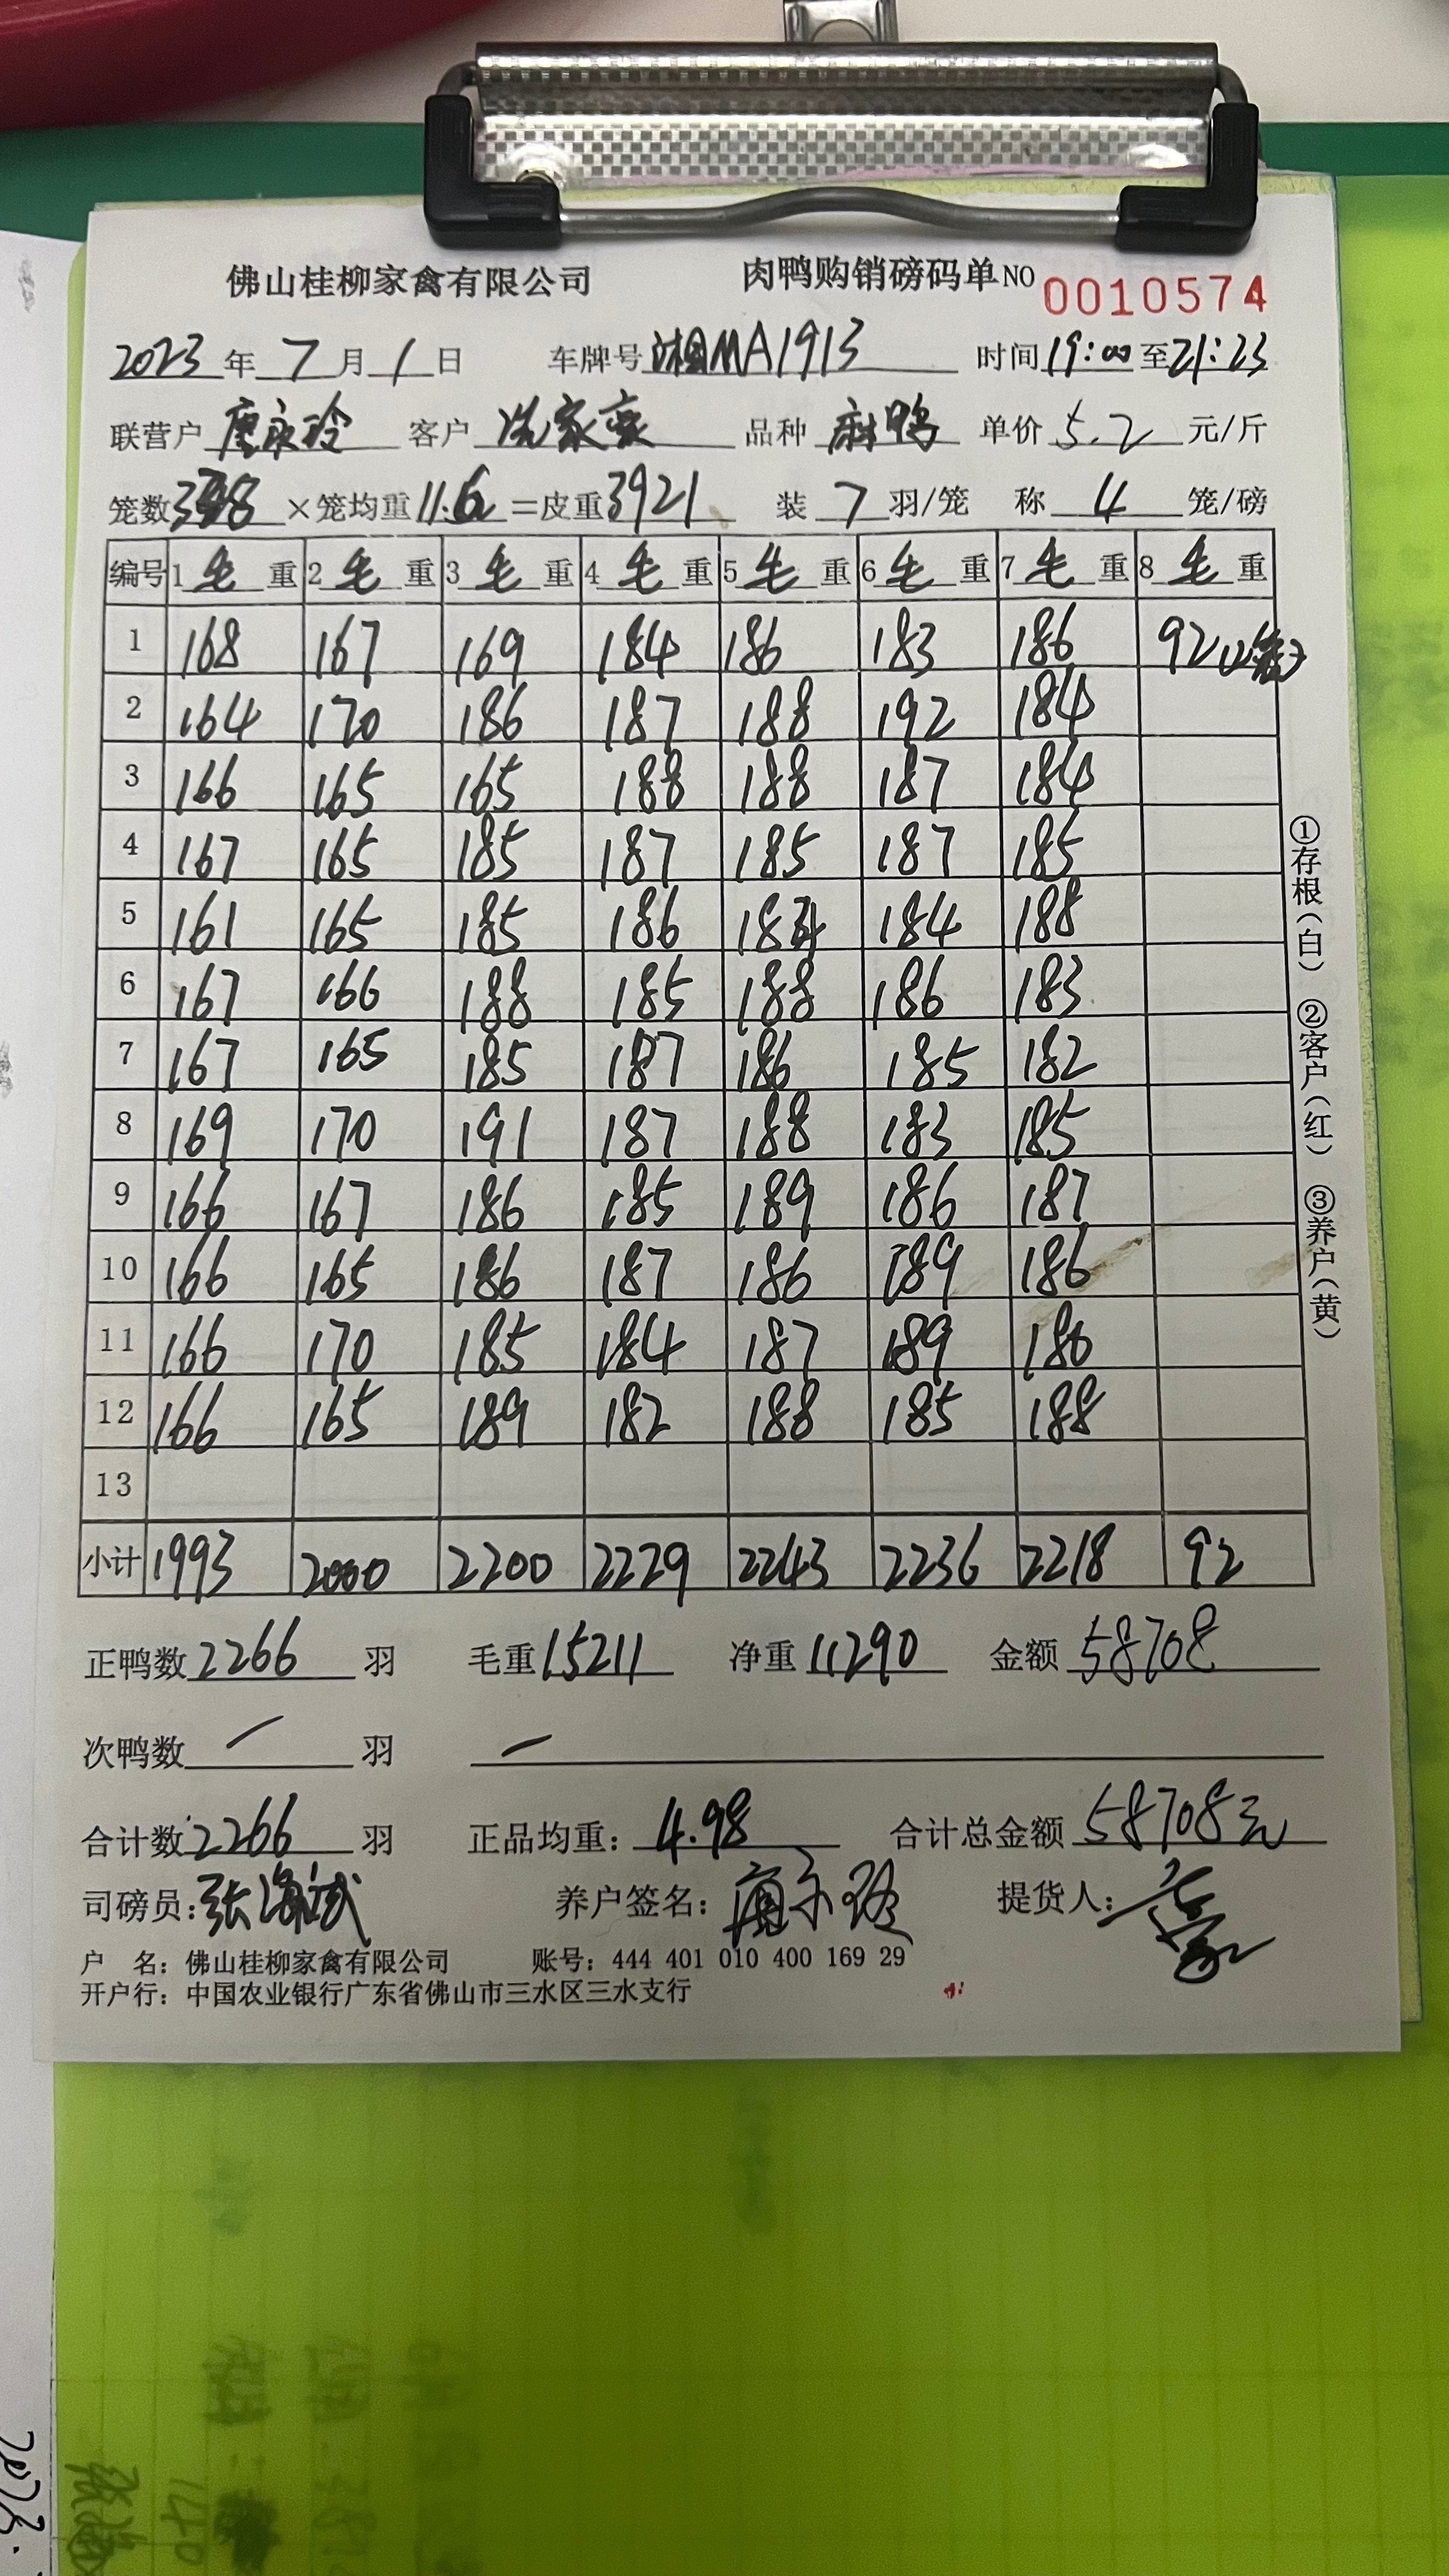 佛山桂柳家禽有限公司 肉鸭购销磅码单NO 0010574
2023年7月1日 车牌号 湘MA1913 时间19:00至21:23
联营户 唐永玲 客户 家豪 品种 麻鸭 单价 5.2 元/斤
笼数338×笼均重11.6=皮重3921 装 7 羽/笼 称 4 笼/磅
编号 1毛重 2毛重 3毛重 4毛重 5毛重 6毛重 7毛重 8毛重
1 168 167 169 184 186 183 186 92(2笼)
2 164 170 186 187 188 192 184
3 166 165 165 188 188 187 184
4 167 165 185 187 185 187 185
5 161 165 185 186 184 184 188
6 167 166 188 185 188 186 183
7 167 165 185 187 186 185 182
8 169 170 191 187 188 183 185
9 166 167 186 185 189 186 187
10 166 165 186 187 186 189 186
11 166 170 185 184 187 189 186
12 166 165 189 182 188 185 188
13
小计 1993 2000 2200 2229 2243 2236 2218 92
①存根(白) ②客户(红) ③养户(黄)
正鸭数2266羽 毛重15211 净重11290 金额58708
次鸭数 / 羽 —
合计数2266羽 正品均重:4.98 合计总金额58708元
司磅员:张海斌 养户签名: 提货人:
户 名:佛山桂柳家禽有限公司 账号:444 401 010 400 169 29
开户行:中国农业银行广东省佛山市三水区三水支行